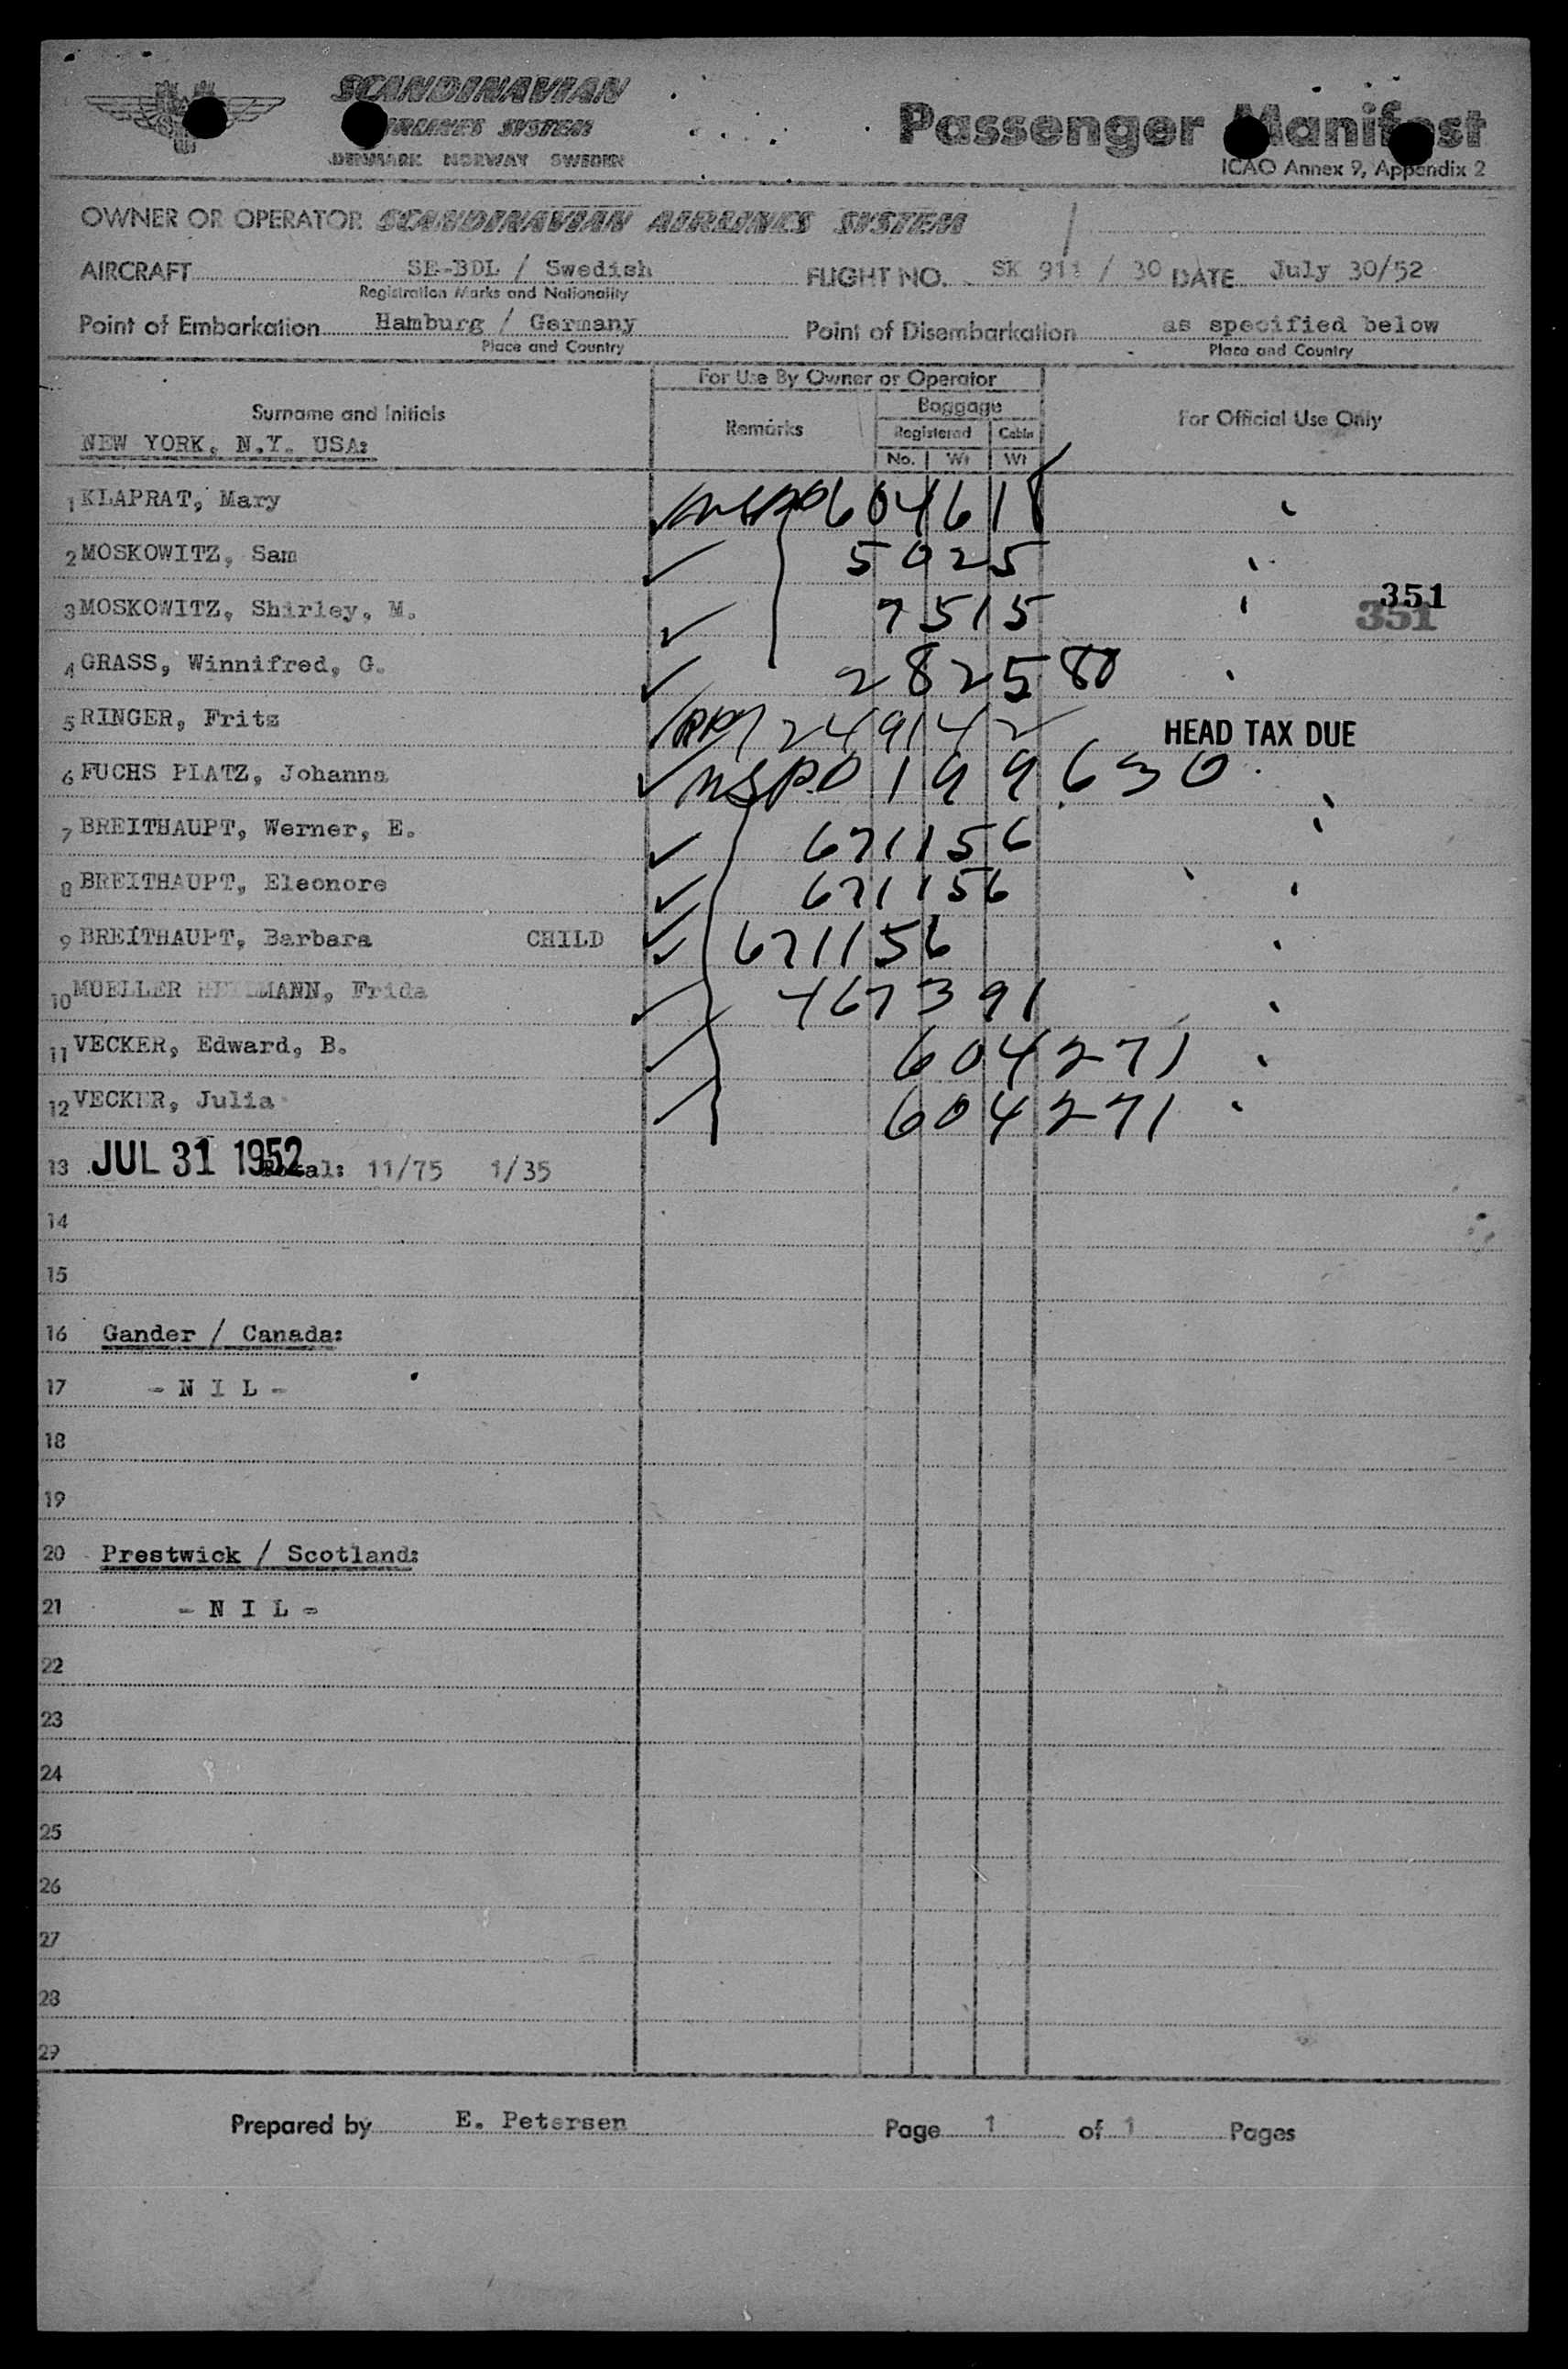 SCANDINAVIAN
AIRLINES SYSTEM
DENMARK NORWAY SWEDEN
Passenger Manifest
ICAO Annex 9, Appendix 2
OWNER OR OPERATOR SCANDINAVIAN AIRLINES SYSTEM
AIRCRAFT SE-BDL / Swedish FLIGHT NO. SK 911 / 30 DATE July 30/52
Registration Marks and Nationality
Point of Embarkation Hamburg / Germany Point of Disembarkation as specified below
Place and Country Place and Country
For Use By Owner or Operator
Surname and Initials Remarks Baggage For Official Use Only
Registered Cabin
NEW YORK, N.Y. USA: No. Wt Wt
1 KLAPRAT, Mary 604618
2 MOSKOWITZ, Sam 5025
3 MOSKOWITZ, Shirley, M. 7515 351
351
4 GRASS, Winnifred, G. 282580
5 RINGER, Fritz 249142 HEAD TAX DUE
6 FUCHS PLATZ, Johanna 199630
7 BREITHAUPT, Werner, E. 671156
8 BREITHAUPT, Eleonore 671156
9 BREITHAUPT, Barbara CHILD 671156
10 MUELLER Frida 467391
11 VECKER, Edward, B. 604271
12 VECKER, Julia 604271
13 JUL 31 1952 Total: 11/75 1/35
14
15
16 Gander / Canada:
17 - N I L -
18
19
20 Prestwick / Scotland:
21 - N I L -
22
23
24
25
26
27
28
29
Prepared by E. Petersen Page 1 of 1 Pages